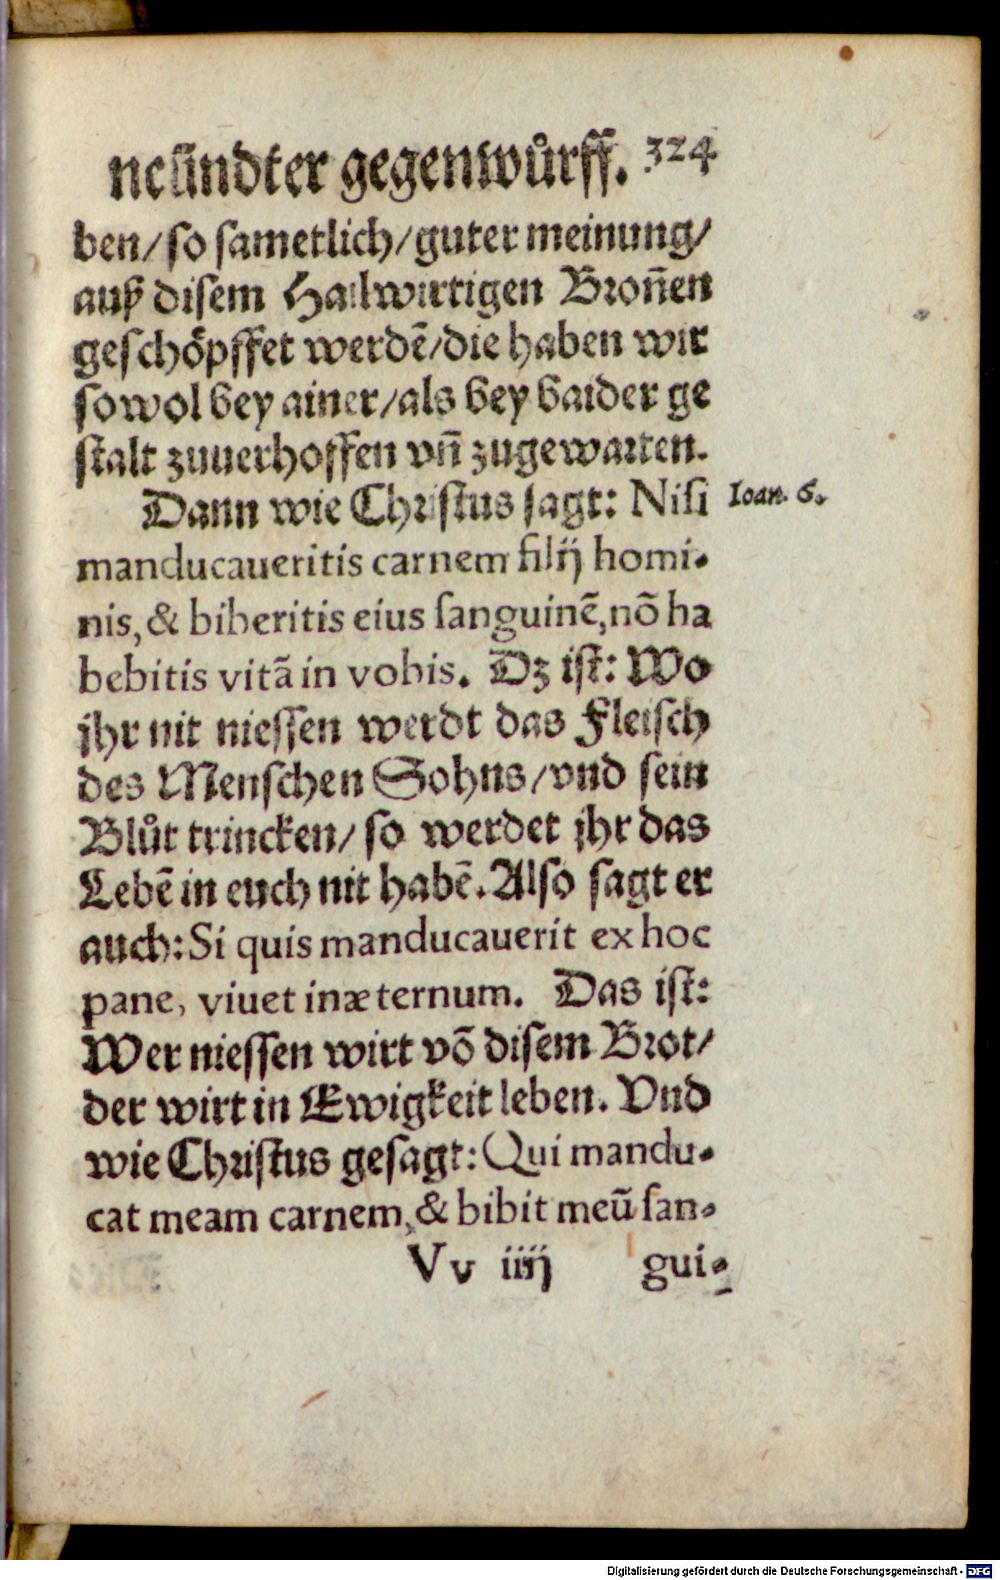 neündter gegenwůrff. 324
ben/ so sametlich/ guter meinung/
auß disem Hailwirtigen Broñen
geschöpffet werdẽ/ die haben wir
sowol bey ainer/ als bey baider ge
stalt zuuerhoffen vñ zugewarten.
Dann wie Christus sagt: Nisi
Ioan. 6.
manducaueritis carnem filij homi-
nis, & biberitis eius sanguinẽ, nõ ha
bebitis vitã in vobis. Dz ist: Wo
jhr nit niessen werdt das Fleisch
des Menschen Sohns/ vnd sein
Blůt trincken/ so werdet jhr das
Lebẽ in euch nit habẽ. Also sagt er
auch: Si quis manducauerit ex hoc
pane, viuet in æternum. Das ist:
Wer niessen wirt võ disem Brot/
der wirt in Ewigkeit leben. Vnd
wie Christus gesagt: Qui mandu-
cat meam carnem, & bibit meũ san-
Vv iiij gui-
Digitalisierung gefördert durch die Deutsche Forschungsgemeinschaft - DFG